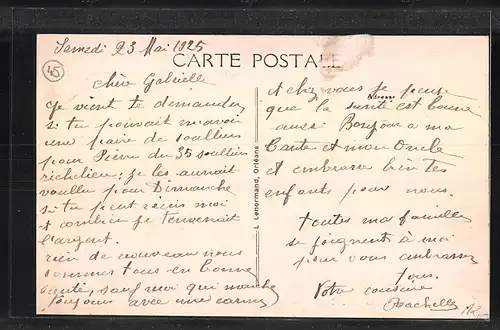 Samedi 23 Mai 1925
CARTE POSTALE
45
Chère Gabrielle
Je vient te demander
si tu pouvait m'avoir
une paire de soulliers
pour Pierre du 35 soulliers
richelieu; je les aurait
voullu pour Dimanche
si tu peut écris moi
et combien je t'enverrait
l'argent.
rien de nouveau nous
sommes tous en bonne
santé, sauf moi qui marche
toujours avec une canne
L. Lenormand, Orléans
et chez vous je pense
que la santé est bonne
aussi Bonjour a ma
tante et mon Oncle
et embrasse bien tes
enfants pour nous.
toutes ma famille
se joignent à moi
pour vous embrasser
tous.
Votre cousine
Rachelle